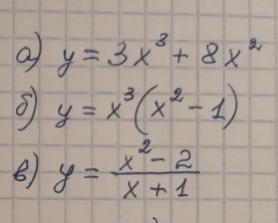 а) y = 3x³ + 8x²
б) y = x³(x² - 1)
в) y = (x² - 2)/(x + 1)